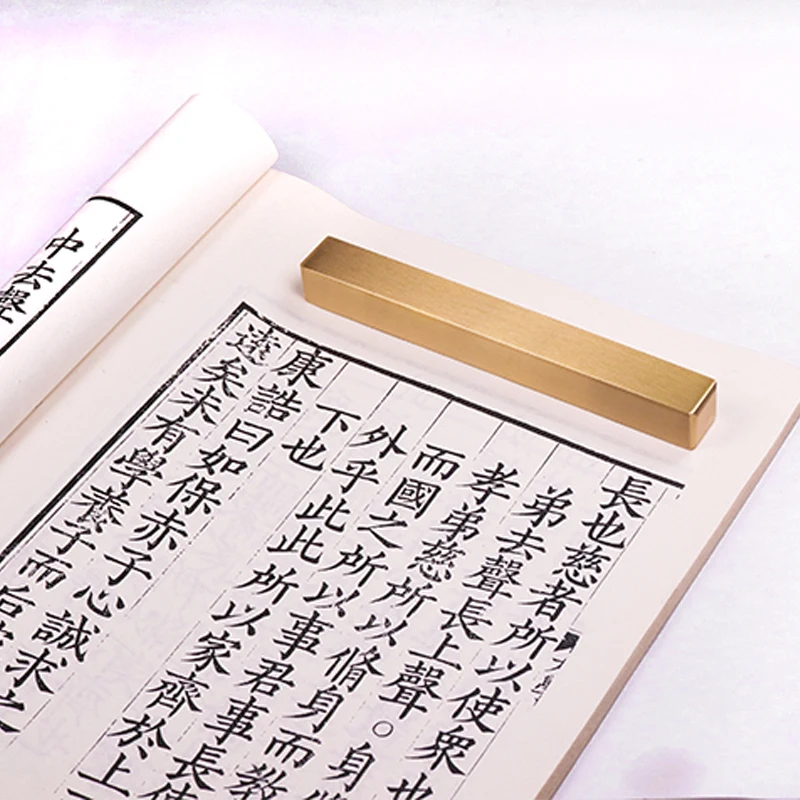 長也慈者所以使衆也
弟去聲長上聲○身
孝弟慈所以脩身而教
而國之所以事君事長使
外乎此此所以家齊於上
下也
康誥曰如保赤子心誠求之
遠矣未有學養子而后
中去聲